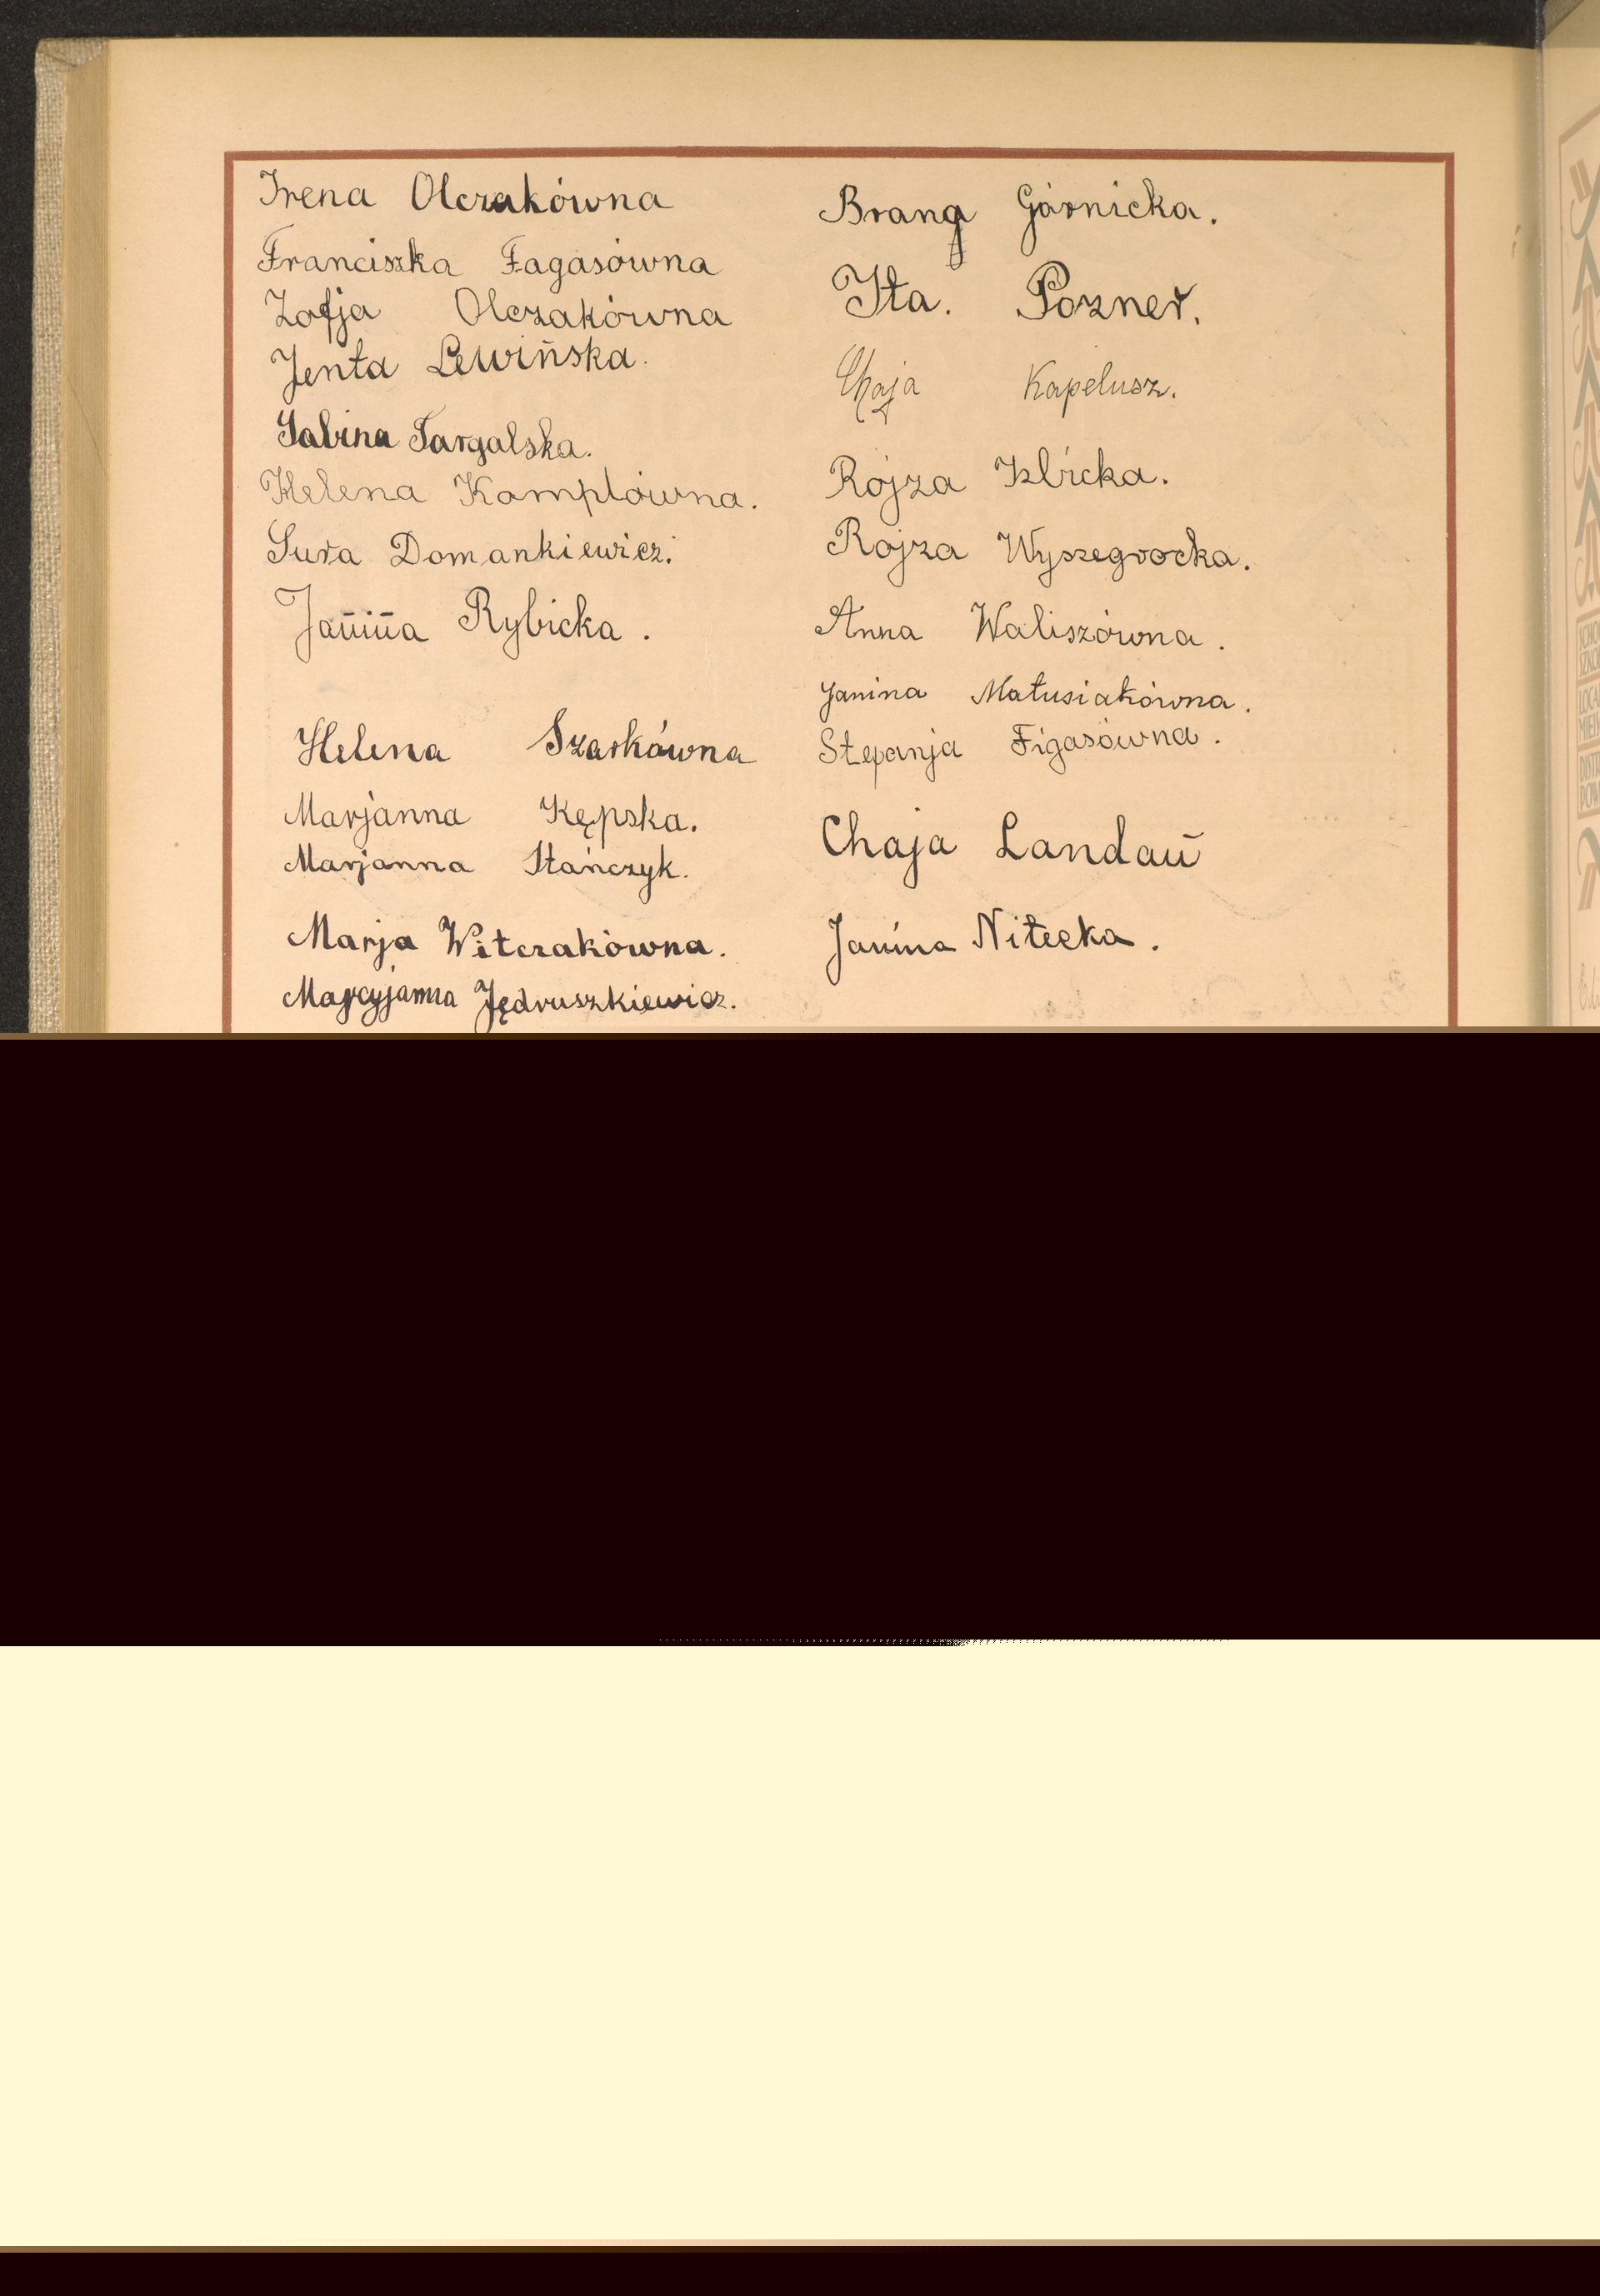 Irena Olczakówna
Franciszka Fagasówna
Zofja Olczakówna
Jenta Lewińska.
Sabina Targalska.
Helena Komplówna.
Sura Domankiewicz.
Janina Rybicka.
Helena Szarkówna
Marjanna Kępska.
Marjanna Stańczyk.
Marja Witczakówna.
Marcyjanna Jędruszkiewicz.
Brana Górnicka.
Ita. Pozner.
Chaja Kapelusz.
Rojza Izbicka.
Rojza Wyszegrocka.
Anna Waliszówna.
Janina Matusiakówna.
Stefanja Figasówna.
Chaja Landau
Janina Nitecka.